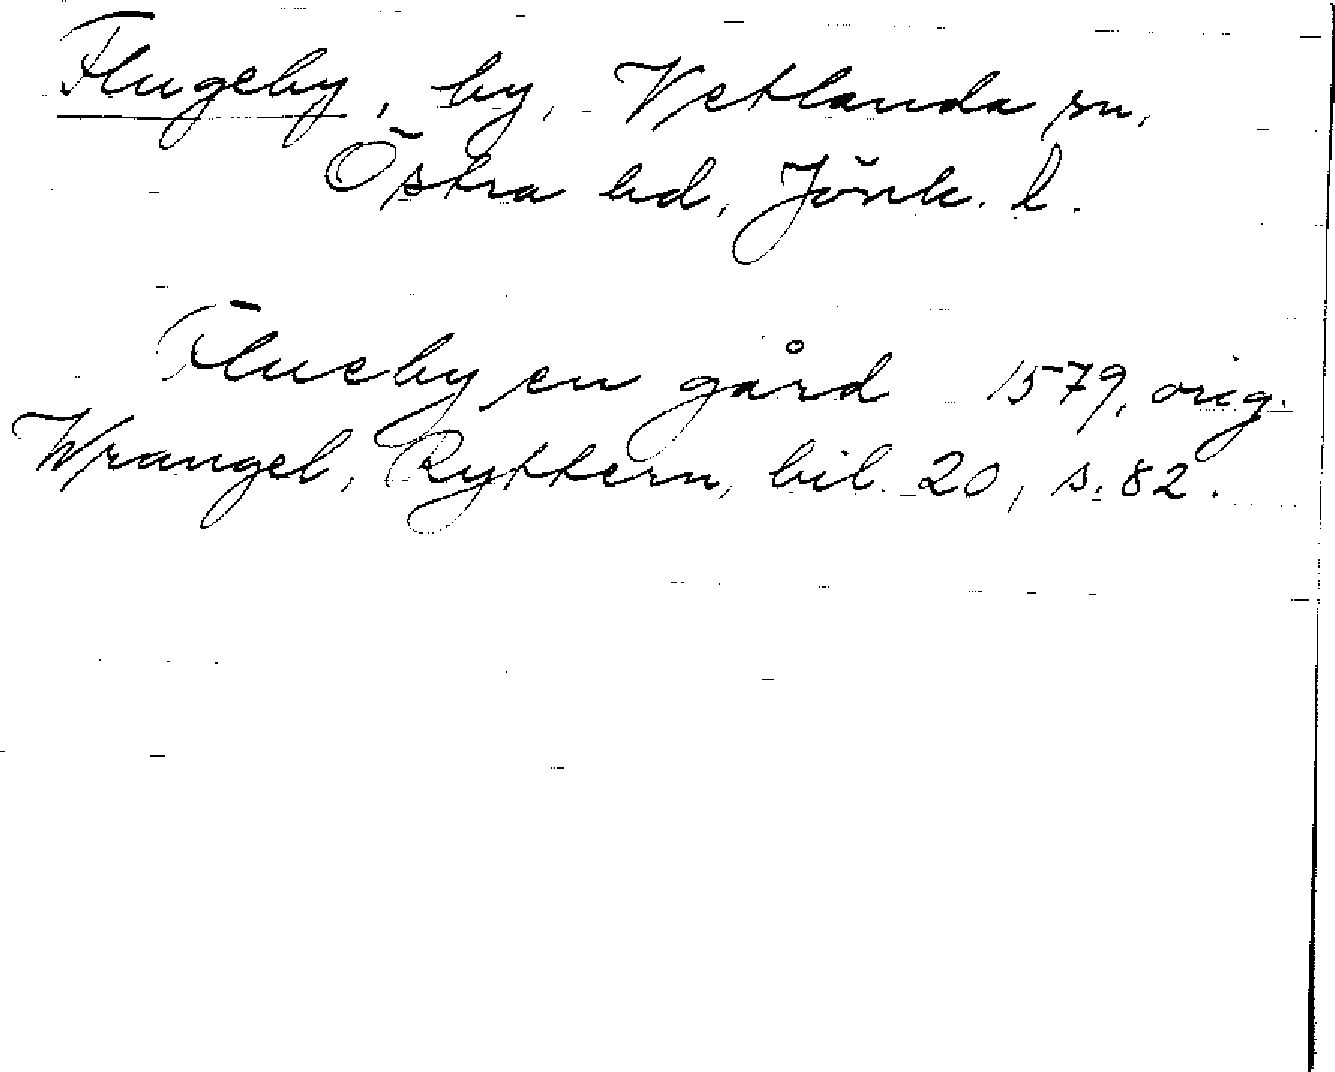 Flugeby, by, Vetlanda sn,
Östra hd, Jönk. l.
Flueby en gård 1579, orig.
Wrangel, Ryttern, bil. 20, s. 82.